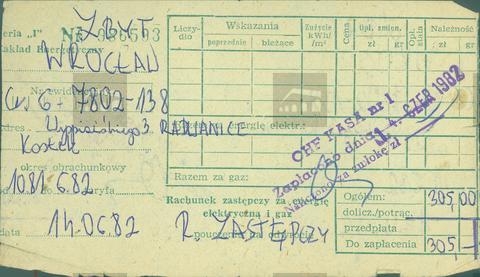 eria „I” Nr
ZBYT
Zakład Energetyczny
WROCŁAW
Nr ewid.
6 - 7802-138
adres Wyspiańskiego 3 RADWANICE
okres obrachunkowy
6.82 taryfa
data 14.06.82
Liczydło
Wskazania
poprzednie bieżące
Zużycie kWh/m³
Cena
Opł. zmien.
zł gr
Opł. stała
Należność
zł gr
energię elektr.:
Razem za gaz:
OHF KASA nr 1
Zapłacono dnia 14. CZER 1982
Naliczono za zwłokę zł
Rachunek zastępczy za energię
elektryczną i gaz
R. ZASTĘPCZY
pouczenia na odwrocie
Ogółem: 305,00
dolicz./potrąc.
przedpłata
Do zapłacenia 305,-